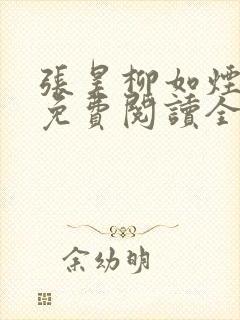 張昊柳如煙
免費閱讀全
余幼明